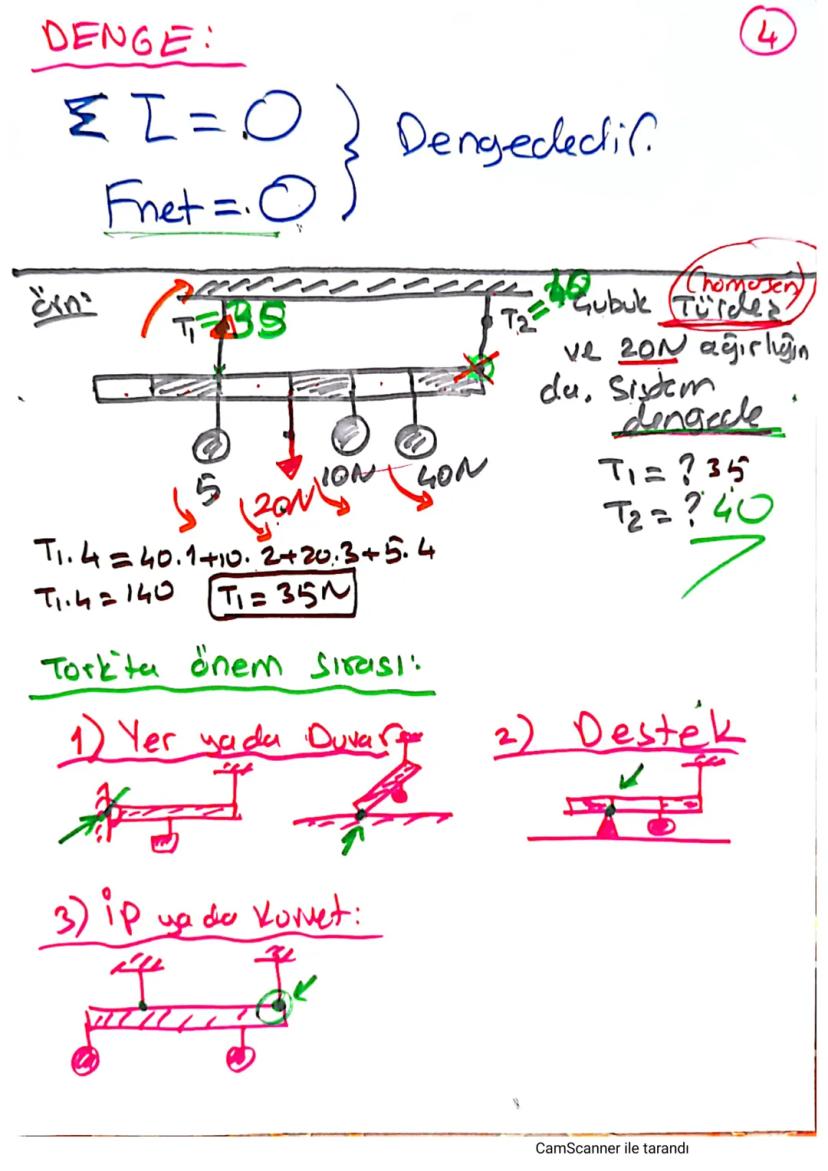 DENGE:
4
Σ τ = 0
Fnet = 0
Dengededir.
örn:
T₁ = 35
T₂ = 40
Çubuk (homojen)
Türdeş
ve 20N ağırlığın
da. Sistem
dengede
T₁ = ? 35
T₂ = ? 40
5
20N
10N
40N
T₁.4 = 40.1+10.2+20.3+5.4
T₁.4 = 140
T₁ = 35N
Tork'ta önem sırası:
1) Yer yada Duvar
2) Destek
3) İp yada Kuvvet:
CamScanner ile tarandı